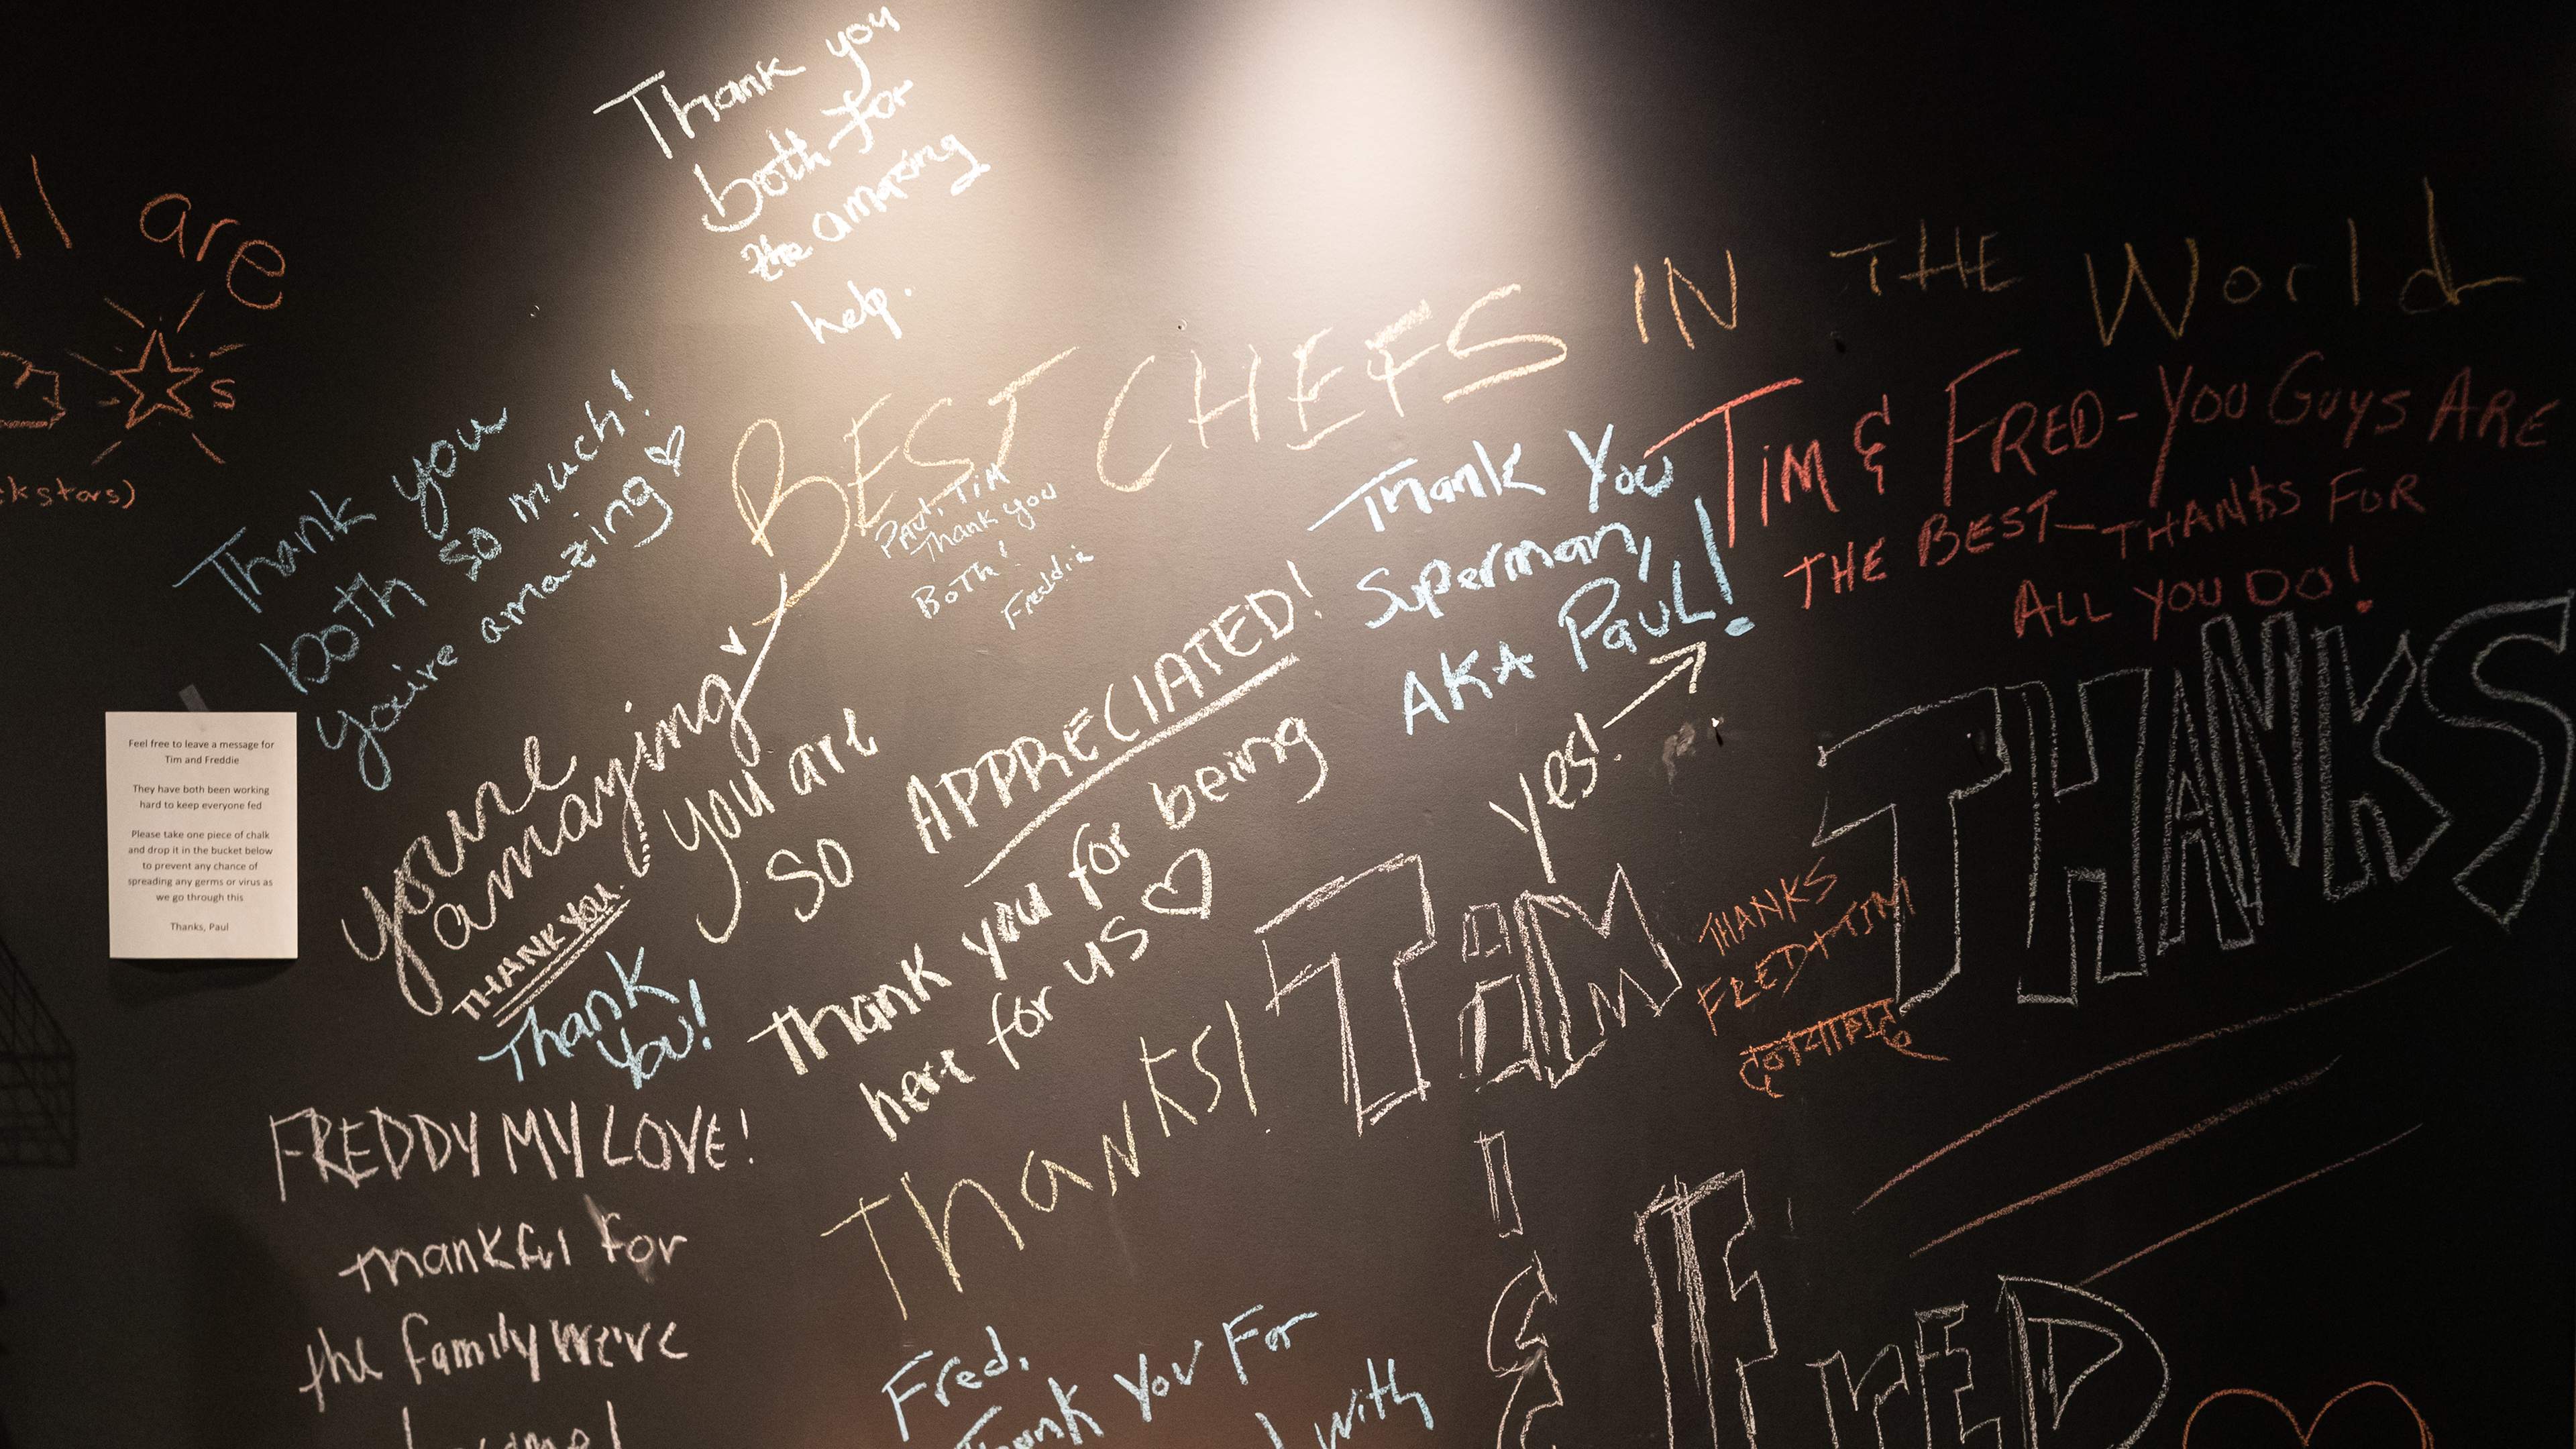 Thank you
both for
the amazing
help.
ll are
s
ckstars)
Thank you
both so much!
you're amazing
BEST CHEFS IN THE World
PAUL, TIM
Thank you
Both!
Freddie
Thank You
Superman,
AKA PAUL!
Yes!
TIM & FRED - YOU GUYS ARE
THE BEST - THANKS FOR
ALL YOU DO!
THANKS
Feel free to leave a message for
Tim and Freddie
They have both been working
hard to keep everyone fed
Please take one piece of chalk
and drop it in the bucket below
to prevent any chance of
spreading any germs or virus as
we go through this
Thanks, Paul
you're
amazing
THANK YOU.
you are
so APPRECIATED!
Thank you for being
here for us
Thank
You!
TIM
THANKS
FRED + TIM
FREDDY MY LOVE!
Thankful for
the family we've
Thanks!
&
FrED
Fred,
Thank You For
with